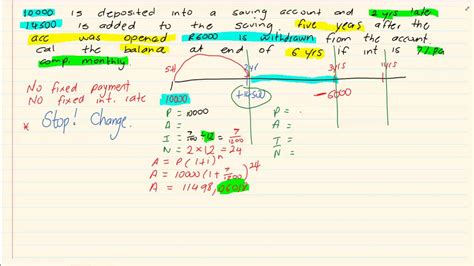 10000 is deposited into a saving account and 2 yrs late
14500 is added to the saving five years after the
acc was opened R6000 is withdrawn from the account.
cal the balance at end of 6 yrs if int is 7% pa
comp. monthly
No fixed payment
No fixed int. rate
* Stop! Change.
10000
2yrs
3yrs
1yrs
+14500
-6000
P = 10000
A =
I = 7/100 ÷ 12 = 7/1200
N = 2 x 12 = 24
A = P(1+i)^n
A = 10000(1 + 7/1200)^24
A = 11498,
P =
A =
I =
N =